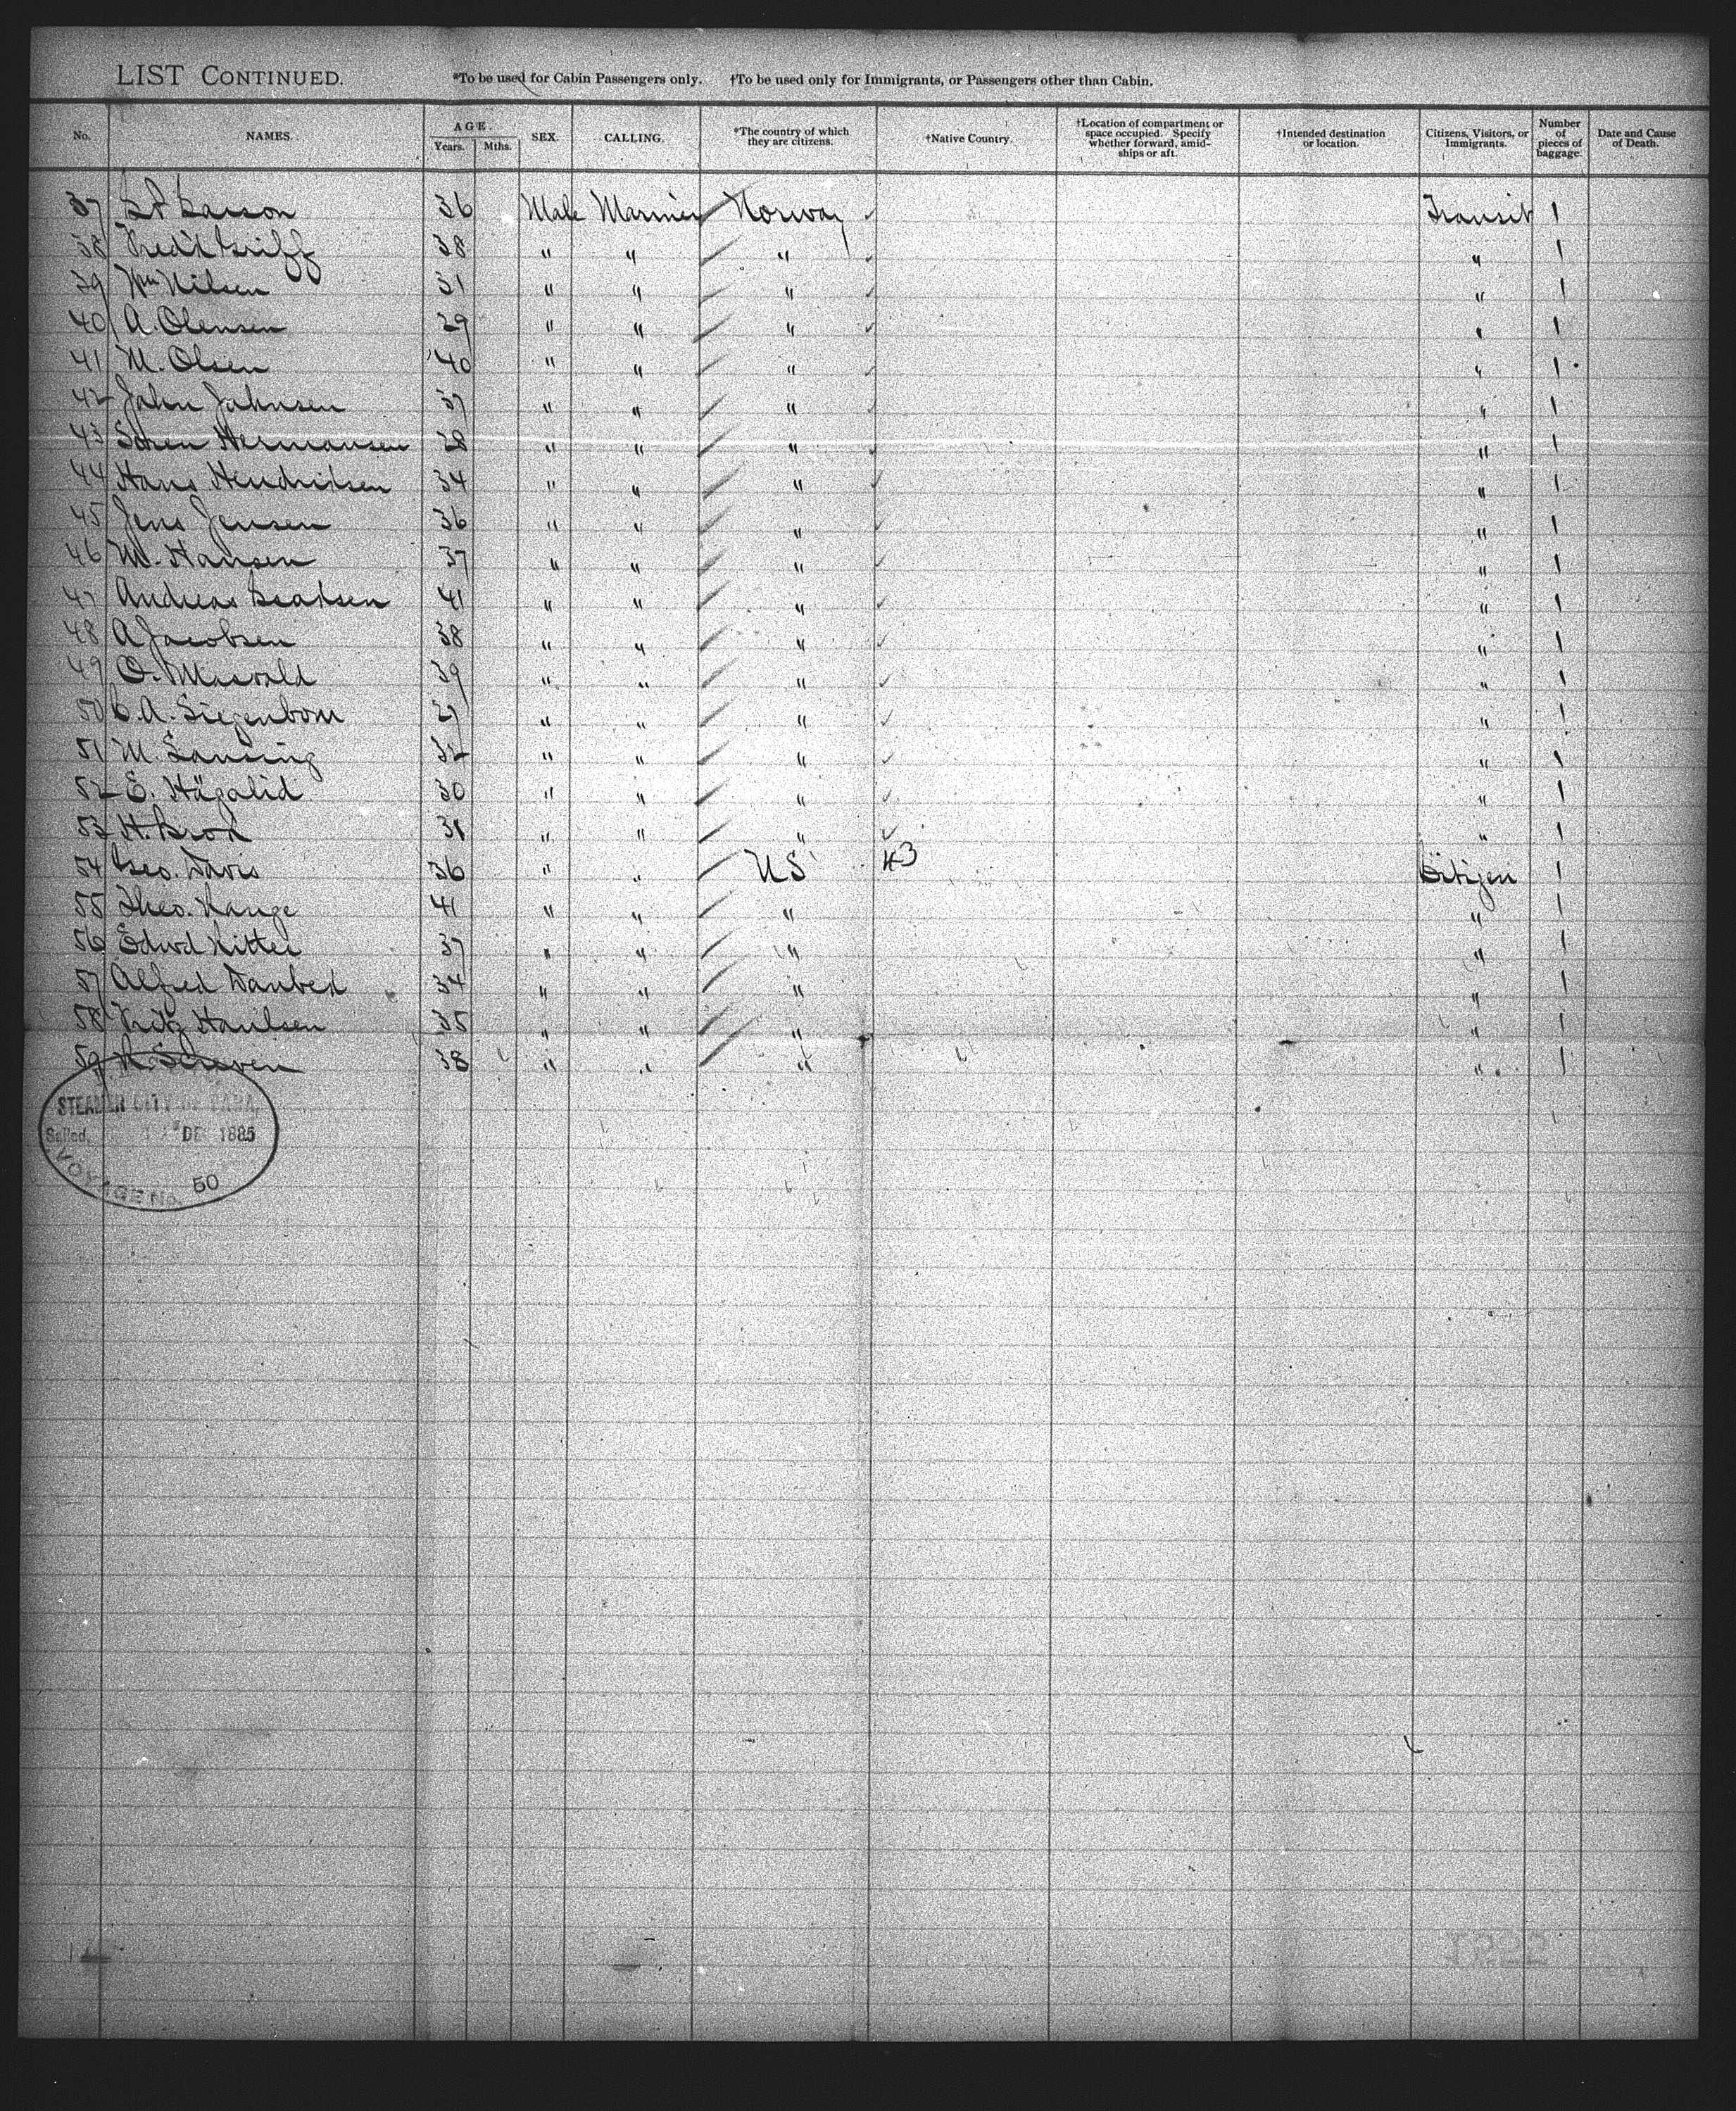 LIST CONTINUED. *To be used for Cabin Passengers only. †To be used only for Immigrants, or Passengers other than Cabin.
No. NAMES. AGE. Years. Mths. SEX. CALLING. *The country of which they are citizens. †Native Country. †Location of compartment or space occupied. Specify whether forward, amidships or aft. †Intended destination or location. Citizens, Visitors, or Immigrants. Number of pieces of baggage. Date and Cause of Death.
37 36 Male Mariner Norway Transit 1
38 38 " " " " 1
39 Wm Nilsen 31 " " " " 1
40 A. Olensen 29 " " " " 1
41 M. Olsen 40 " " " " 1
42 John Johnsen 37 " " " " 1
43 Sören Hermansen 28 " " " " 1
44 Hans Hendriksen 34 " " " " 1
45 Jens Jensen 36 " " " " 1
46 M. Hansen 37 " " " " 1
47 Andreas 41 " " " " 1
48 A Jacobsen 38 " " " " 1
49 O. 39 " " " " 1
50 C. A. Siegenbom " " " " 1
51 M. Lansing 32 " " " " 1
52 E. Hägalid 30 " " " " 1
53 H. 31 " " " " 1
54 Geo. Davis 36 " " US 43 Citizen 1
55 Theo. 41 " " " " 1
56 Edwd 37 " " " " 1
57 Alfred 34 " " " " 1
58 Fritz 35 " " " " 1
59 38 " " " " 1
STEAMER CITY OF PARA,
Sailed, DE 1885
VOYAGE No. 50